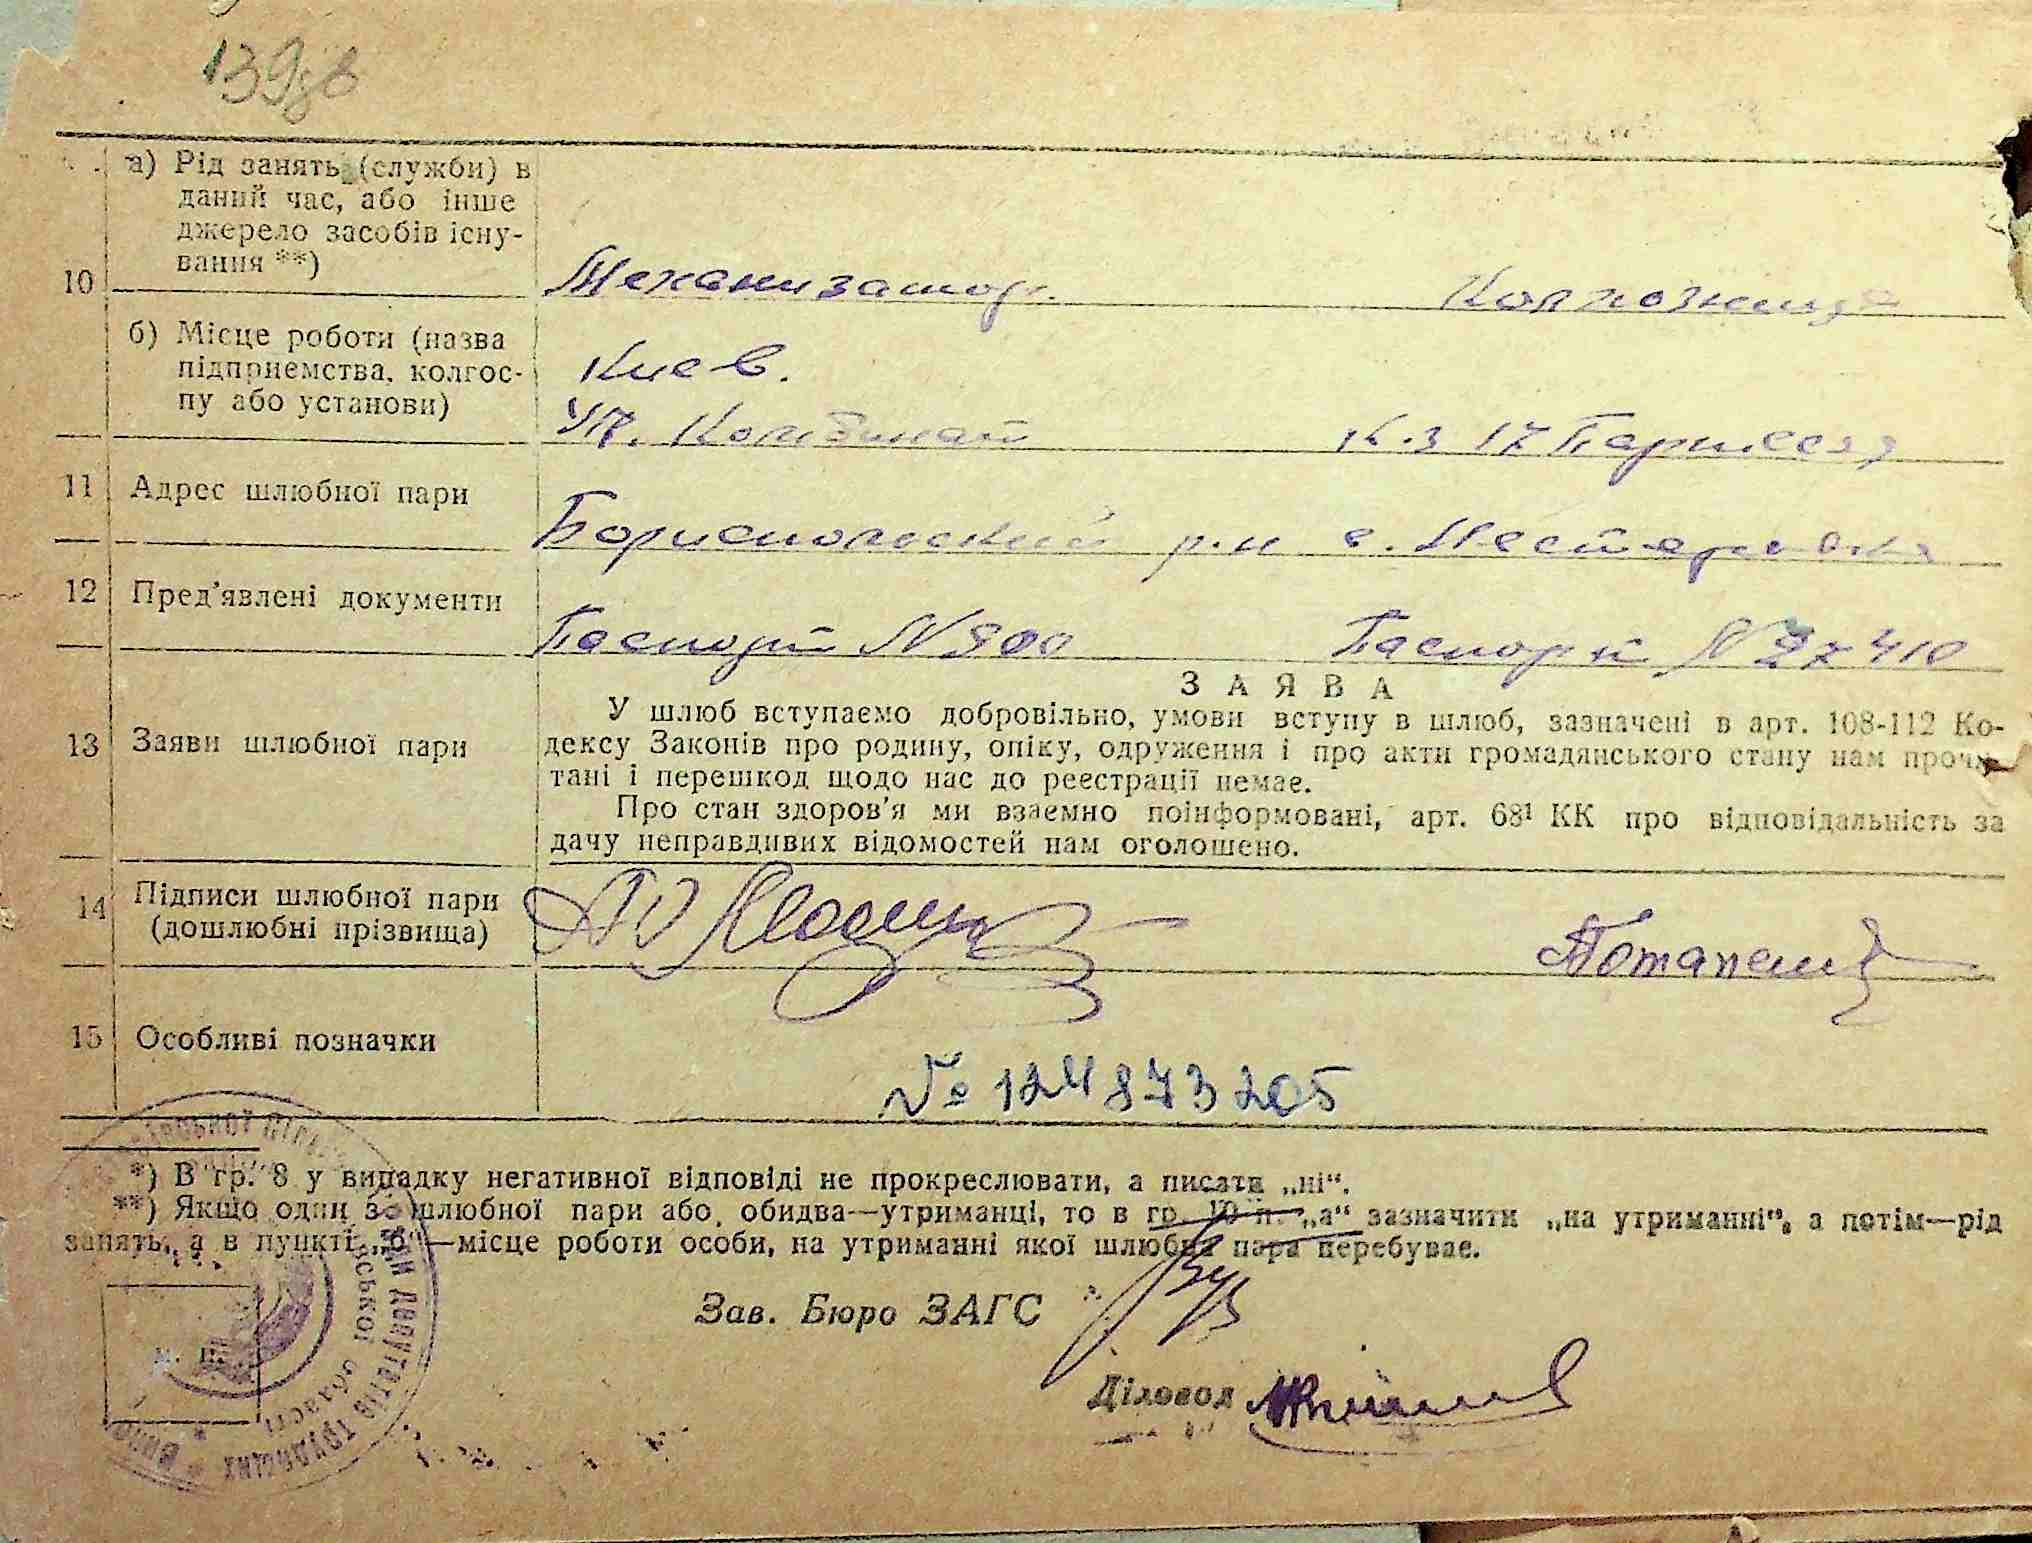 139зв
а) Рід занять (служби) в
даний час, або інше
джерело засобів існу-
вання **)
10
Механизатор. Колхозница
б) Місце роботи (назва
підприємства, колгос-
пу або установи)
Киев.
Комбинат к-з 17 Партсезд
11 Адрес шлюбної пари
Бориспольский р-н с.
12 Пред'явлені документи
Паспорт N 900 Паспорт N 27410
13 Заяви шлюбної пари
ЗАЯВА
У шлюб вступаємо добровільно, умови вступу в шлюб, зазначені в арт. 108-112 Ко-
дексу Законів про родину, опіку, одруження і про акти громадянського стану нам прочи-
тані і перешкод щодо нас до реєстрації немає.
Про стан здоров'я ми взаємно поінформовані, арт. 68¹ КК про відповідальність за
дачу неправдивих відомостей нам оголошено.
14 Підписи шлюбної пари
(дошлюбні прізвища)
Потапенко
15 Особливі позначки
№ 124873205
*) В гр. 8 у випадку негативної відповіді не прокреслювати, а писати „ні“.
**) Якщо один зо шлюбної пари або обидва—утриманці, то в гр. 10 п. „а“ зазначити „на утриманні“, а потім—рід
занять, а в пункті „б“—місце роботи особи, на утриманні якої шлюбна пара перебуває.
Зав. Бюро ЗАГС
м. п.
Діловод
депутатів трудящих
області